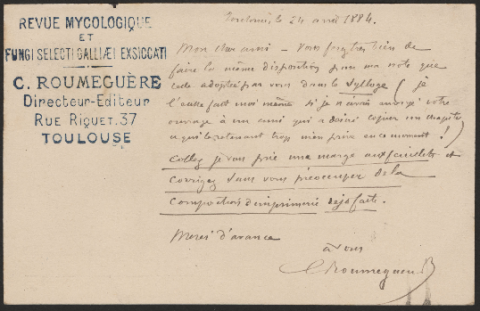 REVUE MYCOLOGIQUE
ET
FUNGI SELECTI GALLIÆI EXSICCATI
C. ROUMEGUÈRE
Directeur-Editeur
RUE RIQUET. 37
TOULOUSE
Toulouse, le 24 avril 1884.
Mon cher ami — Vous ferez très bien de
faire la même disposition pour ma note que
celle adoptée par vous dans le Sylloge ( je
l'aurai fait moi même si je n'avais envoyé votre
ouvrage à un ami qui a désiré copier un chapitre
et qui le retenant trop mien prie en ce moment ! )
Collez je vous prie une marge aux feuillets et
corrigez sans vous préoccuper de la
composition d'imprimerie déjà faite.
Merci d'avance
à vous
C Roumeguère